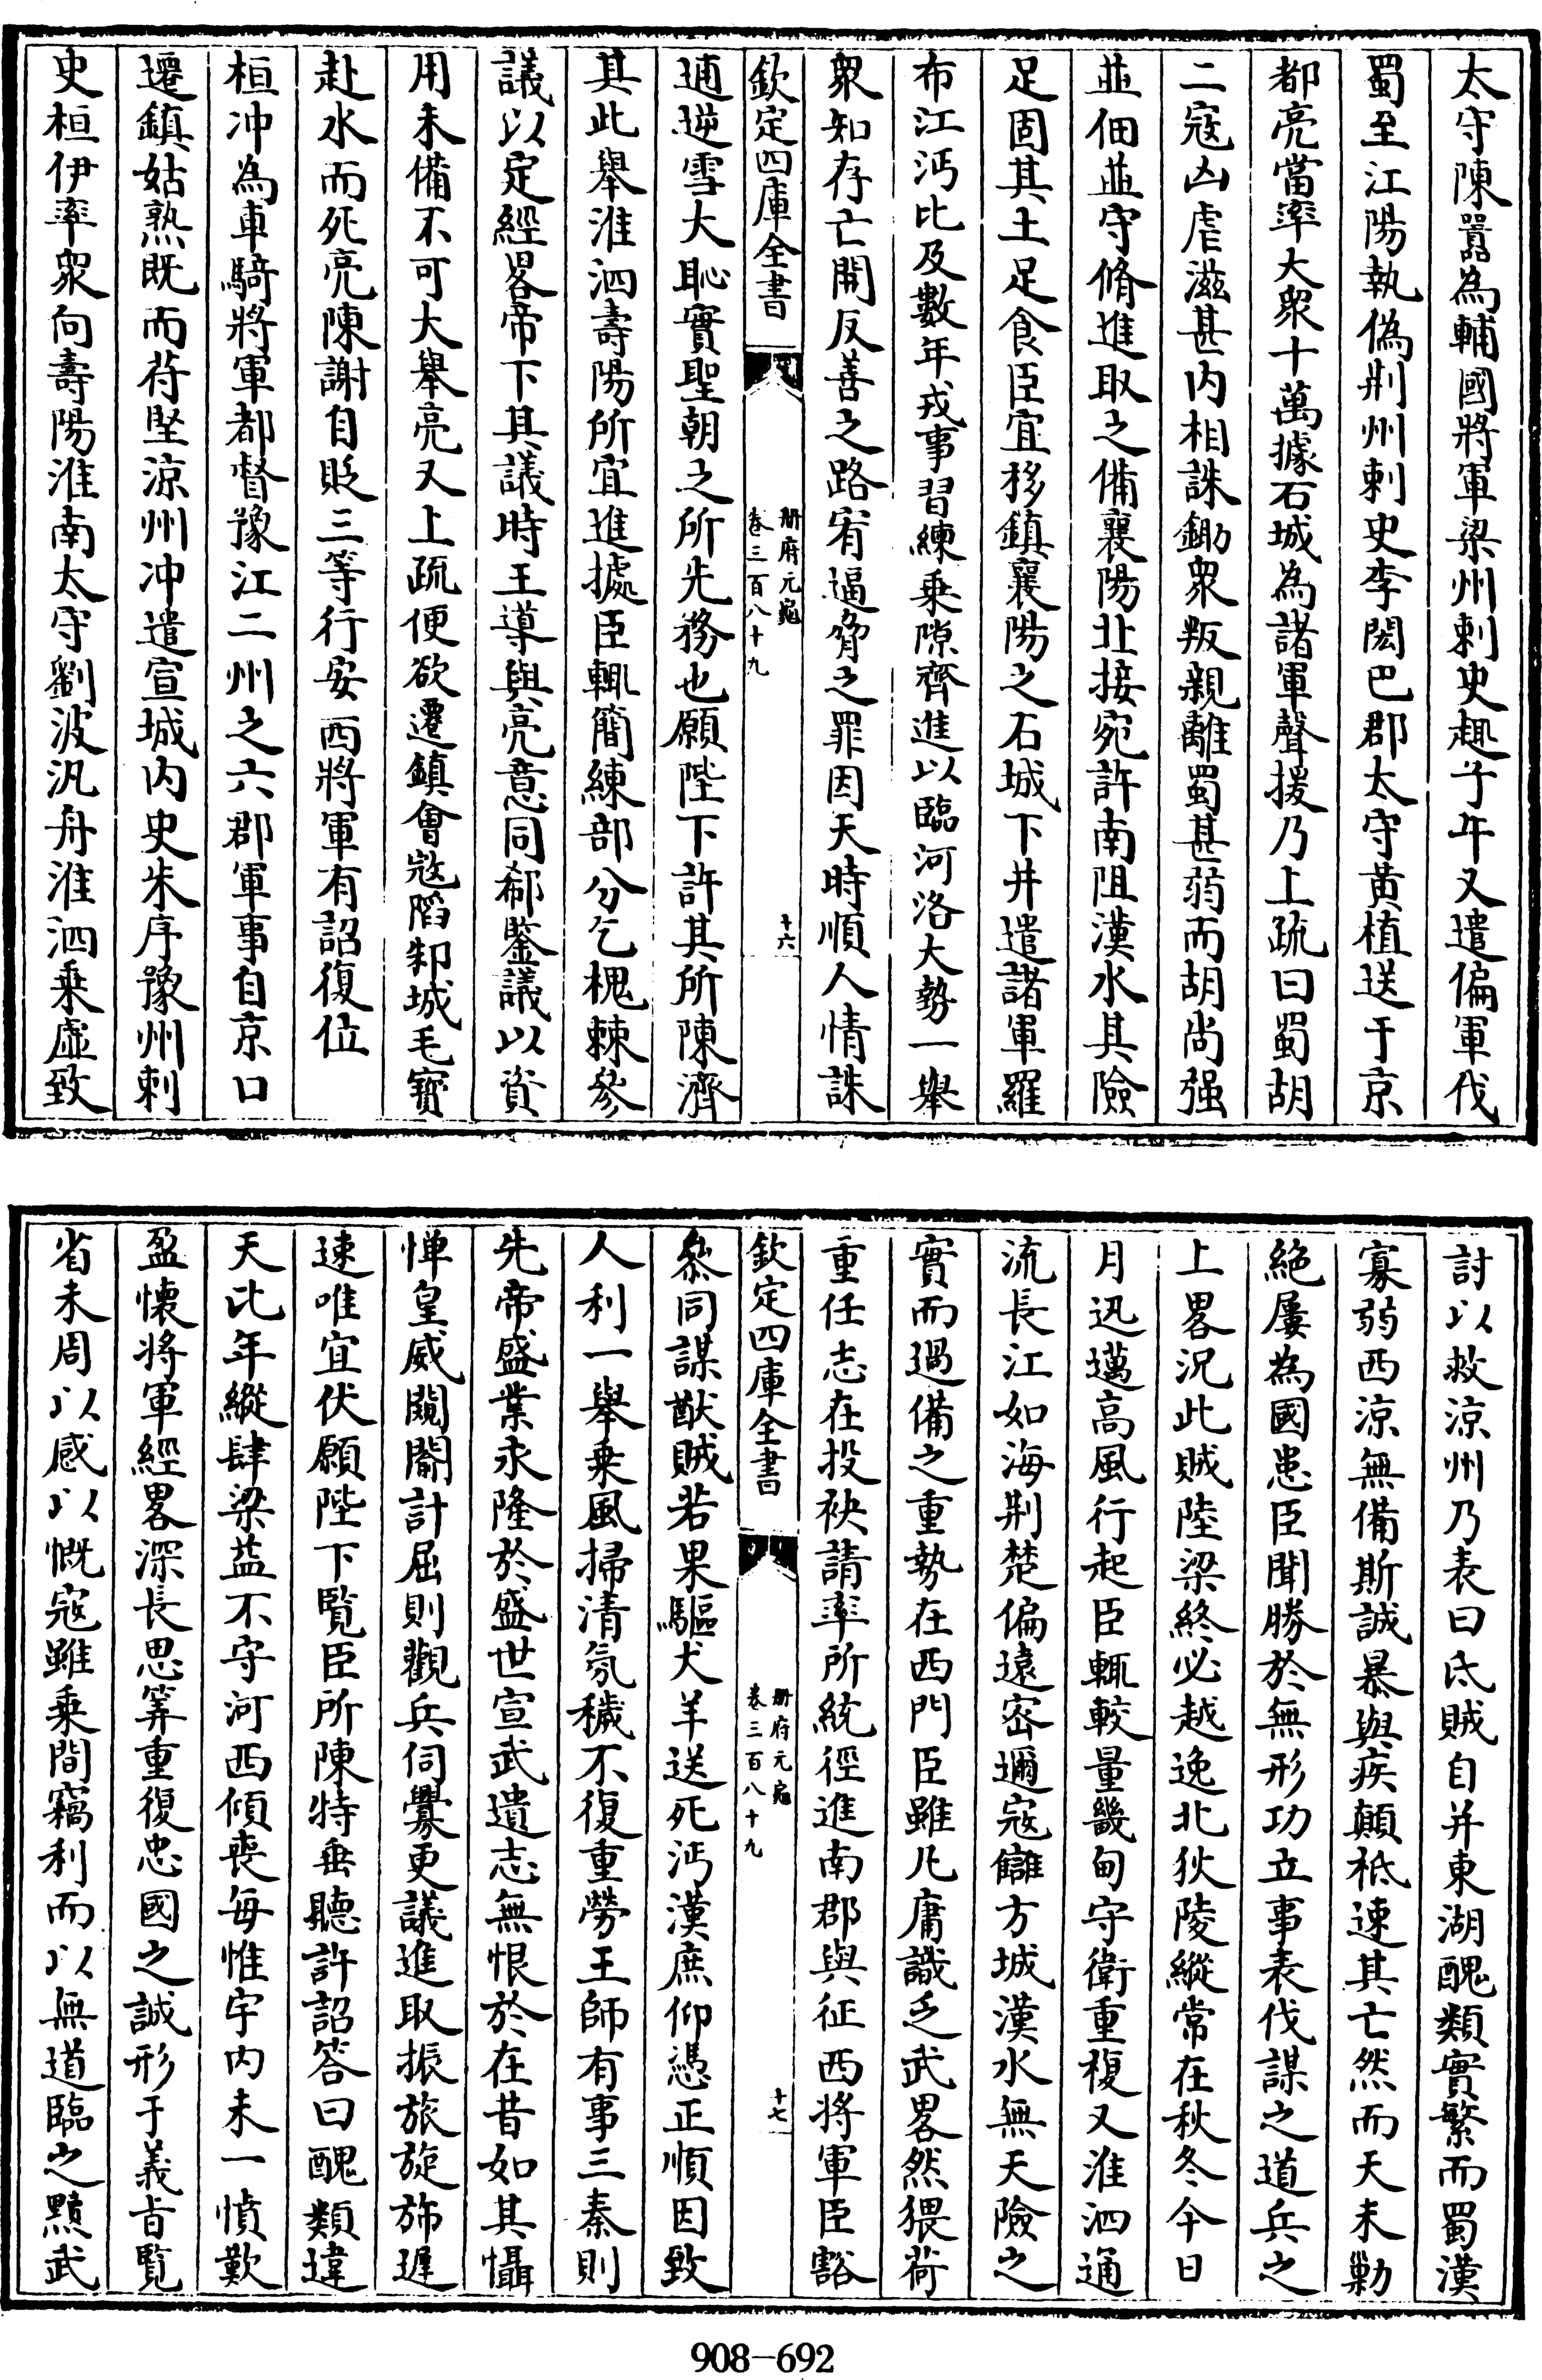 太守陳囂為輔國將軍梁州刺史趣子午又遣偏軍伐
蜀至江陽執偽荆州刺史李閎巴郡太守黃植送于京
都亮當率大衆十萬據石城為諸軍聲援乃上疏曰蜀胡
二寇凶虐滋甚内相誅鋤衆叛親離蜀甚弱而胡尚强
並佃並守脩進取之備襄陽北接宛許南阻漢水其險
足固其土足食臣宜移鎮襄陽之石城下并遣諸軍羅
布江沔比及數年戎事習練乗隙齊進以臨河洛大勢一舉
衆知存亡開反善之路宥逼脅之罪因天時順人情誅
欽定四庫全書
册府元龜
卷三百八十九
十六
逋逆雪大恥實聖朝之所先務也願陛下許其所陳濟
其此舉淮泗壽陽所宜進據臣輒簡練部分乞槐棘參
議以定經畧帝下其議時王導與亮意同郗鑒議以資
用未備不可大舉亮又上疏便欲遷鎮會寇䧟邾城毛寳
赴水而死亮陳謝自貶三等行安西將軍有詔復位
桓冲為車騎將軍都督豫江二州之六郡軍事自京口
遷鎮姑熟既而苻堅涼州冲遣宣城内史朱序豫州刺
史桓伊率衆向壽陽淮南太守劉波汎舟淮泗乗虚致
討以救涼州乃表曰氐賊自并東湖醜類實繁而蜀漢
寡弱西涼無備斯誠暴與疾顛秪速其亡然而天未勦
絶屢為國患臣聞勝於無形功立事表伐謀之道兵之
上畧況此賊陸梁終必越逸北狄陵縱常在秋冬今日
月迅邁高風行起臣輒較量畿甸守衛重複又淮泗通
流長江如海荆楚偏遠密邇寇讎方城漢水無天險之
實而過備之重勢在西門臣雖凡庸識乏武畧然猥荷
重任志在投袂請率所統徑進南郡與征西將軍臣豁
欽定四庫全書
册府元龜
卷三百八十九
十七
叅同謀猷賊若果驅犬羊送死沔漢庶仰憑正順因致
人利一舉乗風掃清氛穢不復重勞王師有事三秦則
先帝盛業永隆於盛世宣武遺志無恨於在昔如其懾
憚皇威闚䦧計屈則觀兵伺釁更議進取振旅旋旆遲
速唯宜伏願陛下覽臣所陳特垂聽許詔答曰醜類違
天比年縱肆梁益不守河西傾喪每惟宇内未一憤歎
盈懷将軍經畧深長思筭重復忠國之誠形于義㫖覽
省未周以感以慨寇雖乗間竊利而以無道臨之黷武
908-692